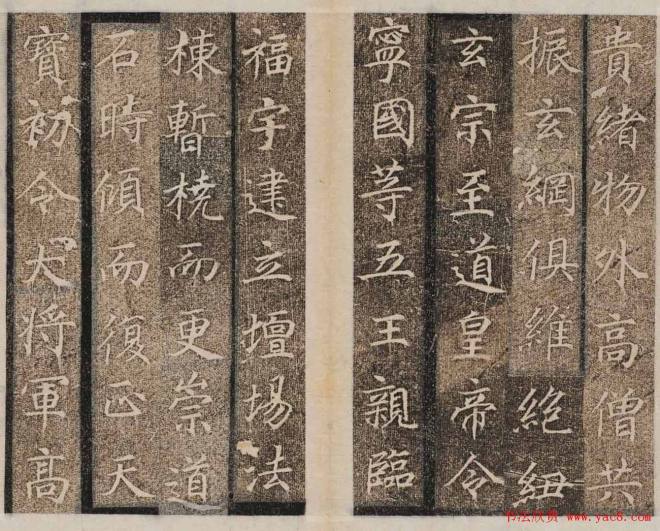 貴緒物外高僧共
振玄綱俱維絕紐
玄宗至道皇帝令
寧國等五王親臨
福宇建立壇場法
棟暫橈而更崇道
石時傾而復正天
寶初令大將軍高
书法欣赏 www.yac8.com